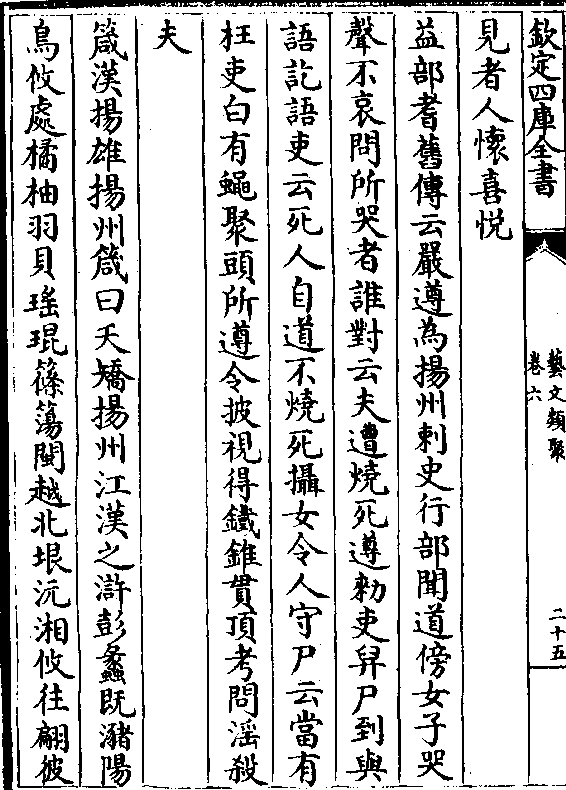 欽定四庫全書
藝文類聚
卷六
二十五
見者人懷喜悅
益部耆舊傳云嚴遵為揚州刺史行部聞道傍女子哭
聲不哀問所哭者誰對云夫遭燒死遵勑吏舁尸到與
語訖語吏云死人自道不燒死攝女令人守尸云當有
枉吏白有蠅聚頭所遵令披視得鐵錐貫頂考問滛殺
夫
箴漢揚雄揚州箴曰夭矯揚州江漢之滸彭蠡既瀦陽
鳥攸處橘柚羽貝瑤琨篠蕩閩越北垠沅湘攸往翩彼